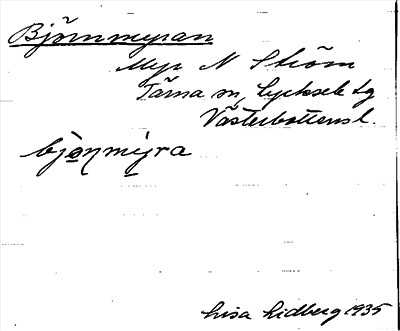 Björnmyran
Myr N Ström
Tärna sn, Lycksele tg
Västerbottens l.
bjo̱ṉmy̱ra
Lisa Lidberg 1935